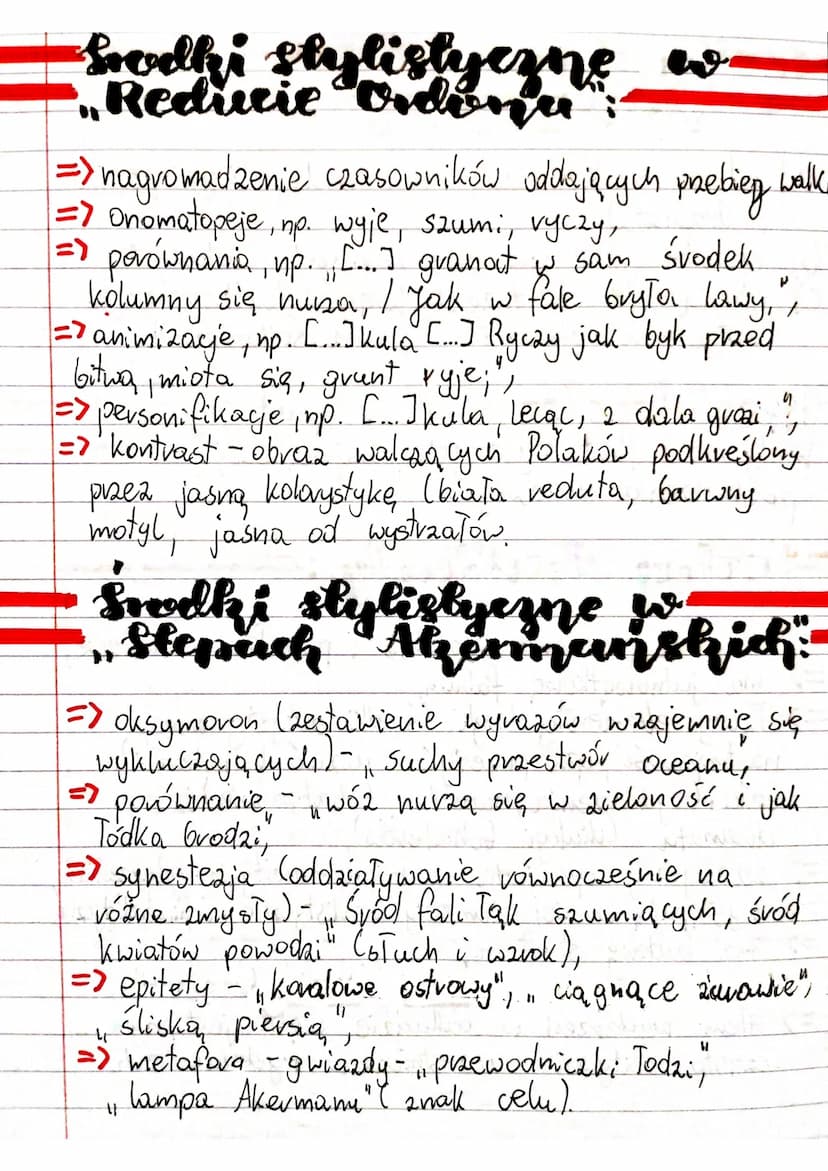 Środki stylistyczne w
„Reducie Ordona":
=> nagromadzenie czasowników oddających przebieg walk
=> Onomatopeje, np. wyje, szumi, ryczy,
=> porównania, np. „[...] granat w sam środek
kolumny się nurza, / Jak w fale bryła lawy,",
=> animizacje, np. [...] kula [...] Ryczy jak byk przed
bitwą, miota się, grunt ryje;",
=> personifikacje, np. [...] kula, lecąc, z dala grozi,",
=> kontrast - obraz walczących Polaków podkreślony
przez jasną kolorystykę (biała reduta, barwny
motyl, jaśna od wystrzałów.
Środki stylistyczne w
„Stepach Akermańskich":
=> oksymoron (zestawienie wyrazów wzajemnie się
wykluczających) - „suchy przestwór oceanu",
=> porównanie - „wóz nurza się w zieloność i jak
łódka brodzi",
=> synestezja (oddziaływanie równocześnie na
różne zmysły) - „Śród fali łąk szumiących, śród
kwiatów powodzi" (słuch i wzrok),
=> epitety - „koralowe ostrowy", „ciągnące żurawie",
„śliską piersią",
=> metafora - gwiazdy - „przewodniczki łodzi",
„lampa Akermanu" (znak celu).